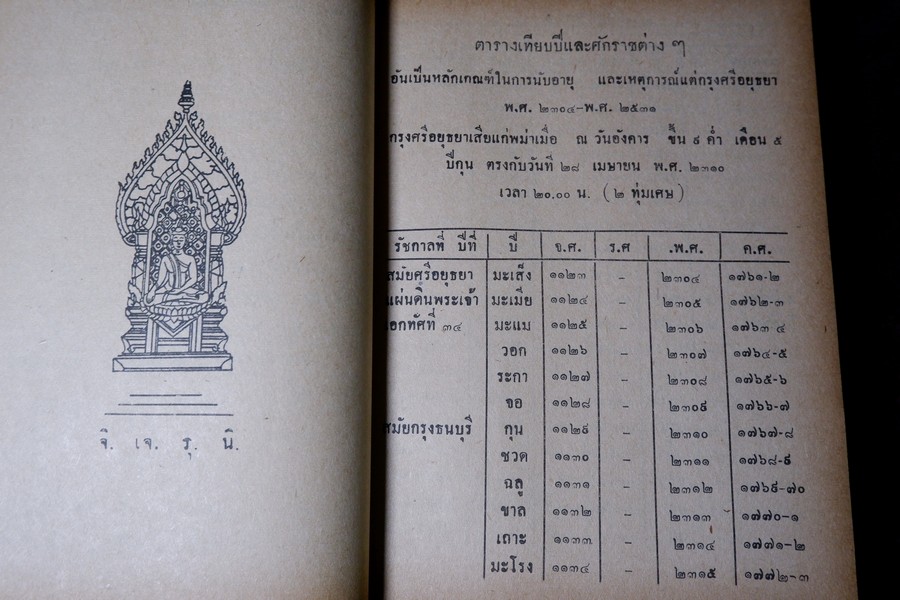 จิ. เจ. รุ. นิ.
ตารางเทียบปีและศักราชต่าง ๆ
อันเป็นหลักเกณฑ์ในการนับอายุ และเหตุการณ์แต่กรุงศรีอยุธยา
พ.ศ. ๒๓๐๔-พ.ศ. ๒๕๓๑
กรุงศรีอยุธยาเสียแก่พม่าเมื่อ ณ วันอังคาร ขึ้น ๙ ค่ำ เดือน ๕
ปีกุน ตรงกับวันที่ ๒๘ เมษายน พ.ศ. ๒๓๑๐
เวลา ๒๐.๐๐ น. (๒ ทุ่มเศษ)
รัชกาลที่ ปีที่ ปี จ.ศ. ร.ศ .พ.ศ. ค.ศ.
สมัยศรีอยุธยา มะเส็ง ๑๑๒๓ – ๒๓๐๔ ๑๗๖๑-๒
แผ่นดินพระเจ้า มะเมีย ๑๑๒๔ – ๒๓๐๕ ๑๗๖๒-๓
เอกทัศที่ ๓๔ มะแม ๑๑๒๕ – ๒๓๐๖ ๑๗๖๓ ๔
วอก ๑๑๒๖ – ๒๓๐๗ ๑๗๖๔-๕
ระกา ๑๑๒๗ – ๒๓๐๘ ๑๗๖๕-๖
จอ ๑๑๒๘ – ๒๓๐๙ ๑๗๖๖-๗
สมัยกรุงธนบุรี กุน ๑๑๒๙ – ๒๓๑๐ ๑๗๖๗-๘
ชวด ๑๑๓๐ – ๒๓๑๑ ๑๗๖๘-๙
ฉลู ๑๑๓๑ – ๒๓๑๒ ๑๗๖๙-๗๐
ขาล ๑๑๓๒ – ๒๓๑๓ ๑๗๗๐-๑
เถาะ ๑๑๓๓ – ๒๓๑๔ ๑๗๗๑-๒
มะโรง ๑๑๓๔ – ๒๓๑๕ ๑๗๗๒-๓